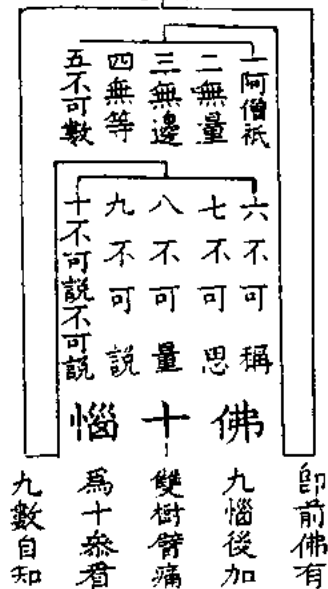 一阿僧祇
二無量
三無邊
四無等
五不可數
六不可稱
七不可思
八不可量
九不可說
十不可說不可說
佛十惱
即前佛有
九惱後加
雙樹臂痛
爲十叅看
九數自知